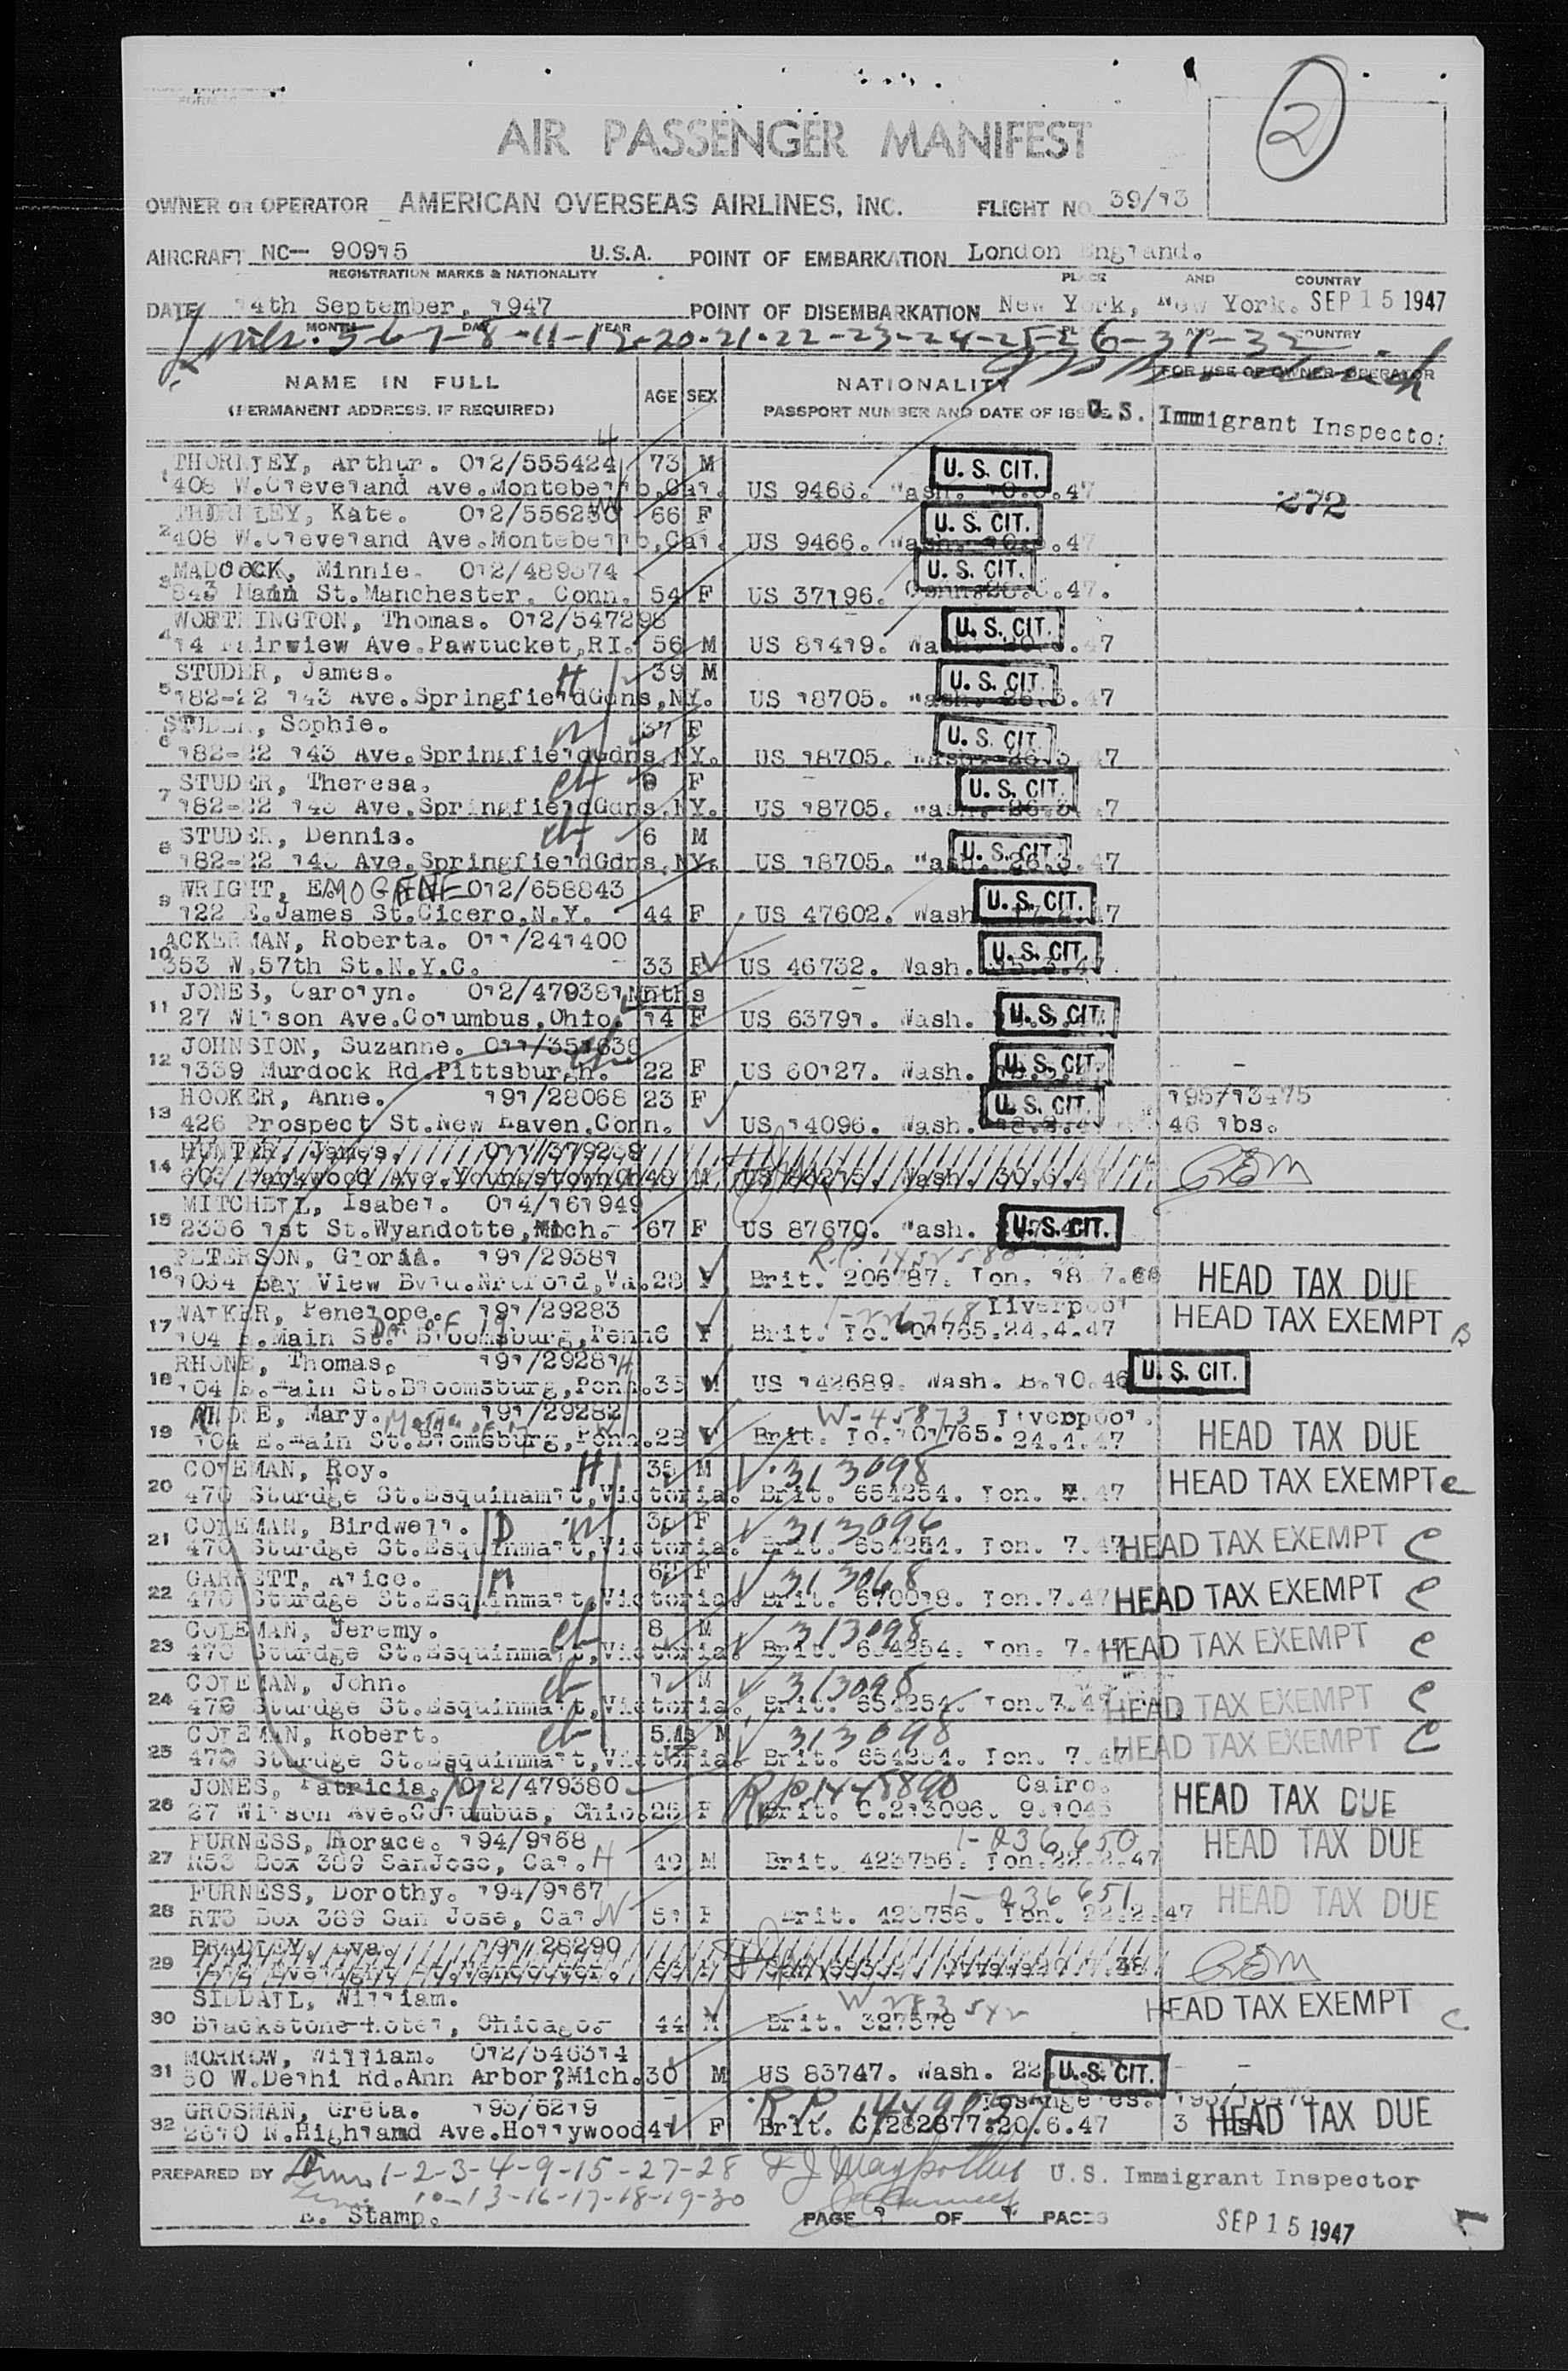 2
AIR PASSENGER MANIFEST
OWNER OR OPERATOR AMERICAN OVERSEAS AIRLINES, INC. FLIGHT NO 39/13
AIRCRAFT NC— 90915 U.S.A. POINT OF EMBARKATION London England.
REGISTRATION MARKS & NATIONALITY PLACE AND COUNTRY
DATE 14th September, 1947 POINT OF DISEMBARKATION New York, New York. SEP 15 1947
MONTH DAY YEAR PLACE AND COUNTRY
5-6-7-8-11-12-20-21-22-23-24-25-26-31-32
NAME IN FULL AGE SEX NATIONALITY FOR USE OF OWNER OPERATOR
(PERMANENT ADDRESS, IF REQUIRED) PASSPORT NUMBER AND DATE OF ISSUE U.S. Immigrant Inspector
1 THORNLEY, Arthur. 012/555424 73 M U.S. CIT.
408 W.Cleveland Ave.Montebello,Cal. US 9466. Wash. 47 272
2 THORNLEY, Kate. 012/556250 66 F U.S. CIT.
408 W.Cleveland Ave.Montebello,Cal. US 9466. Wash. 47
3 MADDOCK, Minnie. 012/489574 U.S. CIT.
843 Main St.Manchester. Conn. 54 F US 37196. 47.
4 WORTHINGTON, Thomas. 012/547298 U.S. CIT.
14 Fairview Ave.Pawtucket,RI. 56 M US 81419. Wash. 47
5 STUDER, James. H 39 M U.S. CIT.
182-22 143 Ave.SpringfieldGdns,NY. US 18705. Wash. 26.3.47
6 STUDER, Sophie. W 37 F U.S. CIT.
182-22 143 Ave.SpringfieldGdns,NY. US 18705. Wash. 26.3.47
7 STUDER, Theresa. ch 9 F U.S. CIT.
182-22 143 Ave.SpringfieldGdns,NY. US 18705. Wash. 26.3.47
8 STUDER, Dennis. ch 6 M U.S. CIT.
182-22 143 Ave.SpringfieldGdns,NY. US 18705. Wash. 26.3.47
9 WRIGHT, EMOGENE 012/658843 U.S. CIT.
122 E.James St.Cicero,N.Y. 44 F US 47602. Wash. 47
10 ACKERMAN, Roberta. 011/241400 U.S. CIT.
353 W.57th St.N.Y.C. 33 F US 46732. Wash. 47
11 JONES, Carolyn. 012/479381 Mnths
27 Wilson Ave.Columbus,Ohio. 14 F US 63791. Wash. U.S. CIT.
12 JOHNSTON, Suzanne. 011/351636
1339 Murdock Rd.Pittsburgh. 22 F US 60127. Wash. U.S. CIT.
13 HOOKER, Anne. 191/28068 23 F U.S. CIT. 195/13475
426 Prospect St.New Haven.Conn. US 14096. Wash. 46 lbs.
14 HUNTER, James. 011/379239
Parkwood Ave.Youngstown 48 M Wash. 30.6.47
15 MITCHELL, Isabel. 014/161949
2336 1st St.Wyandotte,Mich. 67 F US 87670. Wash. U.S. CIT.
16 PETERSON, Gloria. 191/29381 HEAD TAX DUE
1034 Bay View Bvld. 28 F Brit. 206787. Lon. 18.7.
17 WALKER, Penelope. 191/29283 Liverpool HEAD TAX EXEMPT B
104 E.Main St. Bloomsburg,Penn 6 F Brit. Lo.101765.24.4.47
18 RHONE, Thomas. 191/29281 H U.S. CIT.
104 E.Main St.Bloomsburg,Penn.35 M US 142689. Wash. 8.10.46
19 RHONE, Mary. 191/29282 W-45873 Liverpool. HEAD TAX DUE
104 E.Main St.Blomsburg,Penn.29 F Brit. Lo.101765. 24.4.47
20 COLEMAN, Roy. H 35 M 313098 HEAD TAX EXEMPT C
470 Sturdge St.Esquinmalt,Victoria. Brit. 654254. Lon. 7.47
21 COLEMAN, Birdwell. D W F 313096 HEAD TAX EXEMPT C
470 Sturdge St.Esquinmalt,Victoria. Brit. 654254. Lon. 7.47
22 GARRETT, Alice. M F 313068 HEAD TAX EXEMPT C
470 Sturdge St.Esquinmalt,Victoria. Brit. 670018. Lon.7.47
23 COLEMAN, Jeremy. ch 8 M 313098 HEAD TAX EXEMPT C
470 Sturdge St.Esquinmalt,Victoria. Brit. 654254. Lon. 7.47
24 COLEMAN, John. ch M 313098 HEAD TAX EXEMPT C
470 Sturdge St.Esquinmalt,Victoria. Brit. 654254. Lon.7.47
25 COLEMAN, Robert. ch M 313098 HEAD TAX EXEMPT C
470 Sturdge St.Esquinmalt,Victoria. Brit. 654254. Lon. 7.47
26 JONES, Patricia. 012/479380 Cairo. HEAD TAX DUE
27 Wilson Ave.Columbus, Ohio.26 F Brit. C.213096.
27 FURNESS, Horace. 194/9168 1-236650 HEAD TAX DUE
R53 Box 389 SanJose, Cal. H 49 M Brit. 423756. Lon.22.2.47
28 FURNESS, Dorothy. 194/9167 1-236651 HEAD TAX DUE
RT3 Box 389 San Jose, Cal. W 51 F Brit. 423756. Lon. 22.2.47
29 BRADLEY, Eva. 191/28290
30 SIDDALL, William. HEAD TAX EXEMPT C
Blackstone Hotel, Chicago. 44 M Brit. 327579
31 MORROW, William. 012/546314 U.S. CIT.
50 W.Delhi Rd.Ann Arbor,Mich.30 M US 83747. Wash. 22
32 GROSMAN, Greta. 195/6219 Los Angeles. HEAD TAX DUE
2670 N.Highland Ave.Hollywood41 F Brit. C.282877.20.6.47 3 lbs
PREPARED BY 1-2-3-4-9-15-27-28 U.S. Immigrant Inspector
10-13-16-17-18-19-30
Stamp. PAGE 1 OF 1 PAGES SEP 15 1947